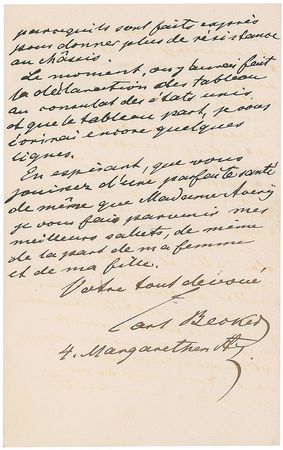 parcequ'ils sont faits exprès
pour donner plus de résistance
au châssis.
Le moment, où j'aurai fait
la déclaration des tableau
au consulat des états unis,
et que le tableau part, je vous
écrirai encore quelques
lignes.
En espérant, que vous
jouissez d'une parfaite santé
de même que Madame Avery
je vous fais parvenir mes
meilleurs saluts, de même
de la part de ma femme
et de ma fille.
Votre tout dévoué
Carl Becker
4. Margarethen